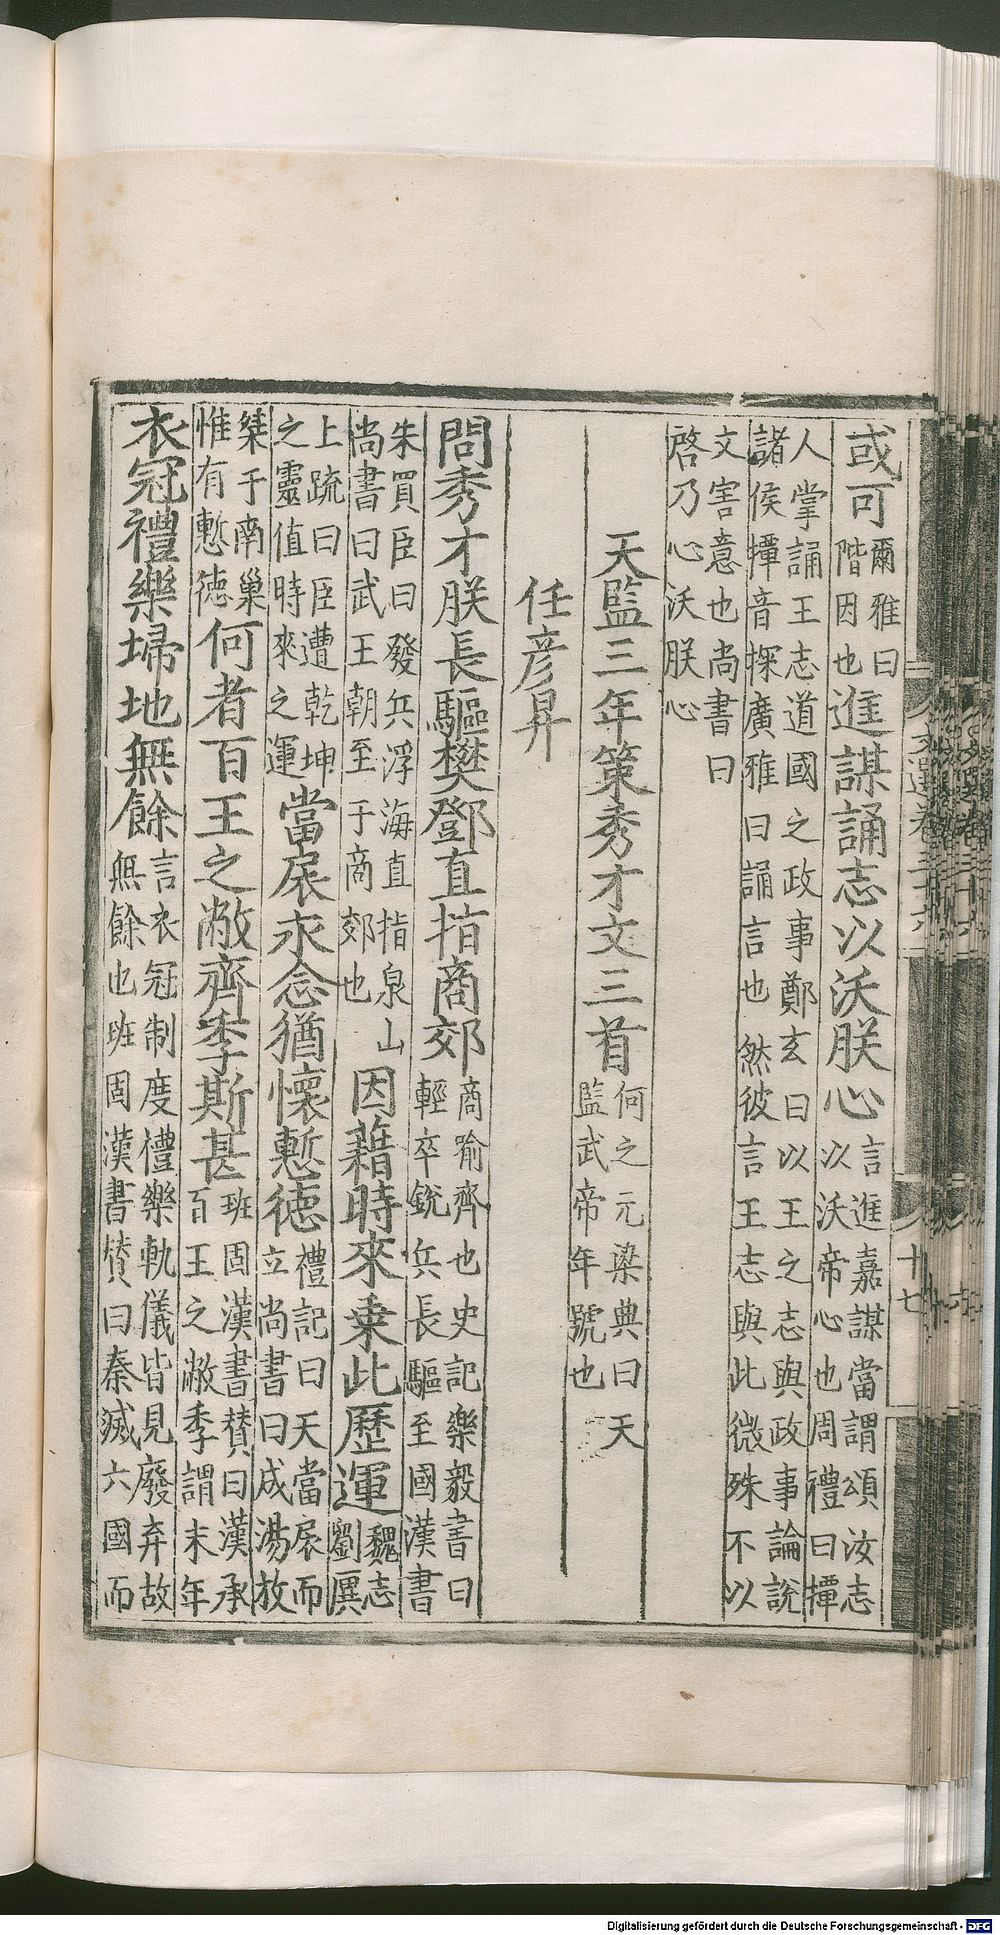 或可爾雅曰階因也進謀誦志以沃朕心言進嘉謀當謂頌汝志以沃帝心也周禮曰撢
人掌誦王志道國之政事鄭玄曰以王之志與政事論說諸侯撢音探廣雅曰誦言也然彼言王志與此微殊不以
文害意也尚書曰啓乃心沃朕心
天監三年策秀才文三首何之元梁典曰天監武帝年號也
任彥昇
問秀才朕長驅樊鄧直指商郊商喻齊也史記樂毅書曰輕卒銳兵長驅至國漢書
朱買臣曰發兵浮海直指泉山尚書曰武王朝至于商郊也因藉時來乗此歷運魏志劉廙
上䟽曰臣遭乾坤之靈值時來之運當扆永念猶懷慙德禮記曰天當扆而立尚書曰成湯放
桀于南巢惟有慙德何者百王之敝齊季斯甚班固漢書賛曰漢承百王之敝季謂末年
衣冠禮樂埽地無餘言衣冠制度禮樂軌儀皆見廢弃故無餘也班固漢書賛曰秦滅六國而
文選卷三十六
十七
Digitalisierung gefördert durch die Deutsche Forschungsgemeinschaft - DFG